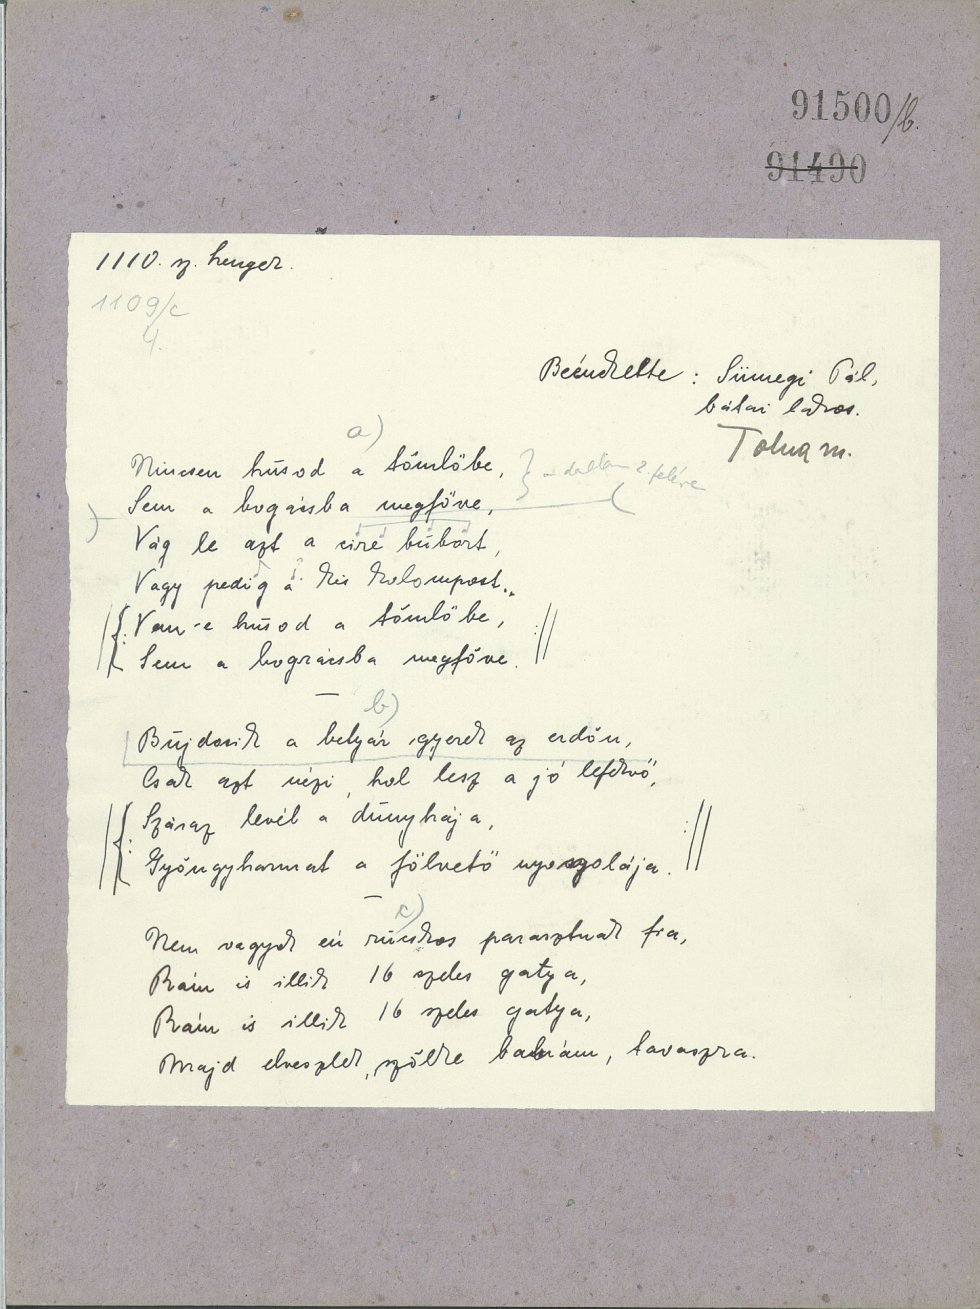 91500/b.
91490
1110. sz. henger.
1109/c
4.
Beénekelte: Sümegi Pál,
bátai lakos.
Tolna m.
a)
Nincsen húsod a tömlőbe,
a dallam 2. felére
Sem a bográcsba megfőve,
Vág le azt a cire búbört,
Vagy pedig a kis kolompost.
Van-e húsod a tömlőbe,
Sem a bográcsba megfőve.
b)
Bújdosik a betyár gyerek az erdőn,
Csak azt nézi, hol lesz a jó lefekvő,
Száraz levél a dúnyhája,
Gyöngyharmat a fölvető nyoszolája.
c)
Nem vagyok én rücskös parasztnak fia,
Rám is illik 16 szeles gatya,
Rám is illik 16 szeles gatya,
Majd elveszlek, szőke babám, tavaszra.